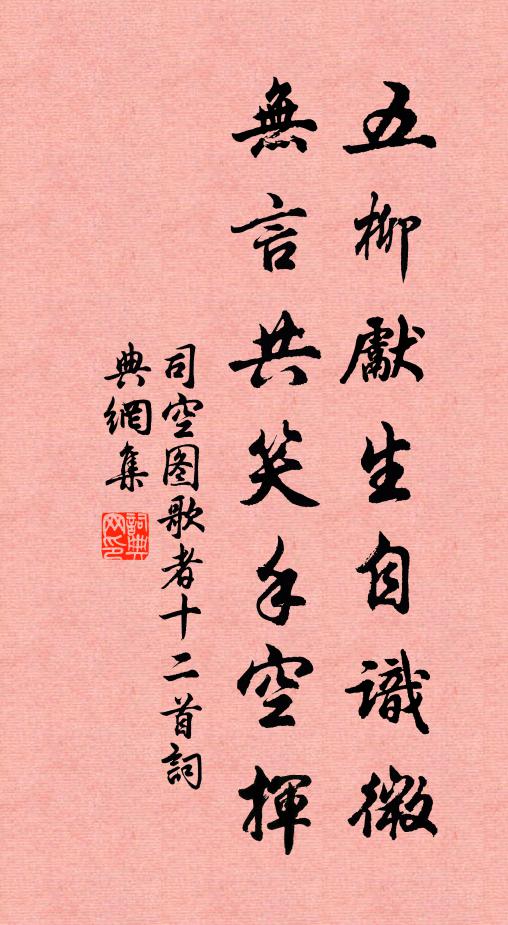 五柳獻生自識微
無言共笑手空揮
司空圖歌者十二首詞
典網集
詞典
网印